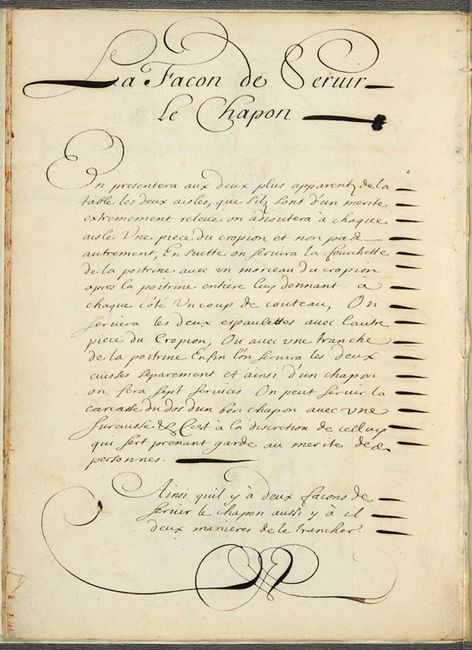 La Facon de Seruir
le Chapon
On presentera aux deux plus apparentz de la
table les deux aisles, que s'ilz sont d'un merite
extremement releue on adioutera à chaque
aisle Vne piece du cropion et non pas
autrement, En suitte on seruira la fourchette
de la poitrine auec vn morceau du cropion
apres la poitrine entiere luy donnant a
chaque côté Vn coup de couteau, On
seruira les deux espaulettes auec l'autre
piece du Cropion, Ou auec vne tranche
de la poitrine Enfin l'on seruira les deux
cuisses separement et ainsi d'un chapon
on fera sept seruices On peut seruir la
carcasse du dos d'un bon chapon auec vne
surcuisse & c'est à la discretion de celluy
qui sert prenant garde au merite des
personnes.
Ainsi qu'il y à deux facons de
seruir le chapon aussi y à il
deux manieres de le trancher